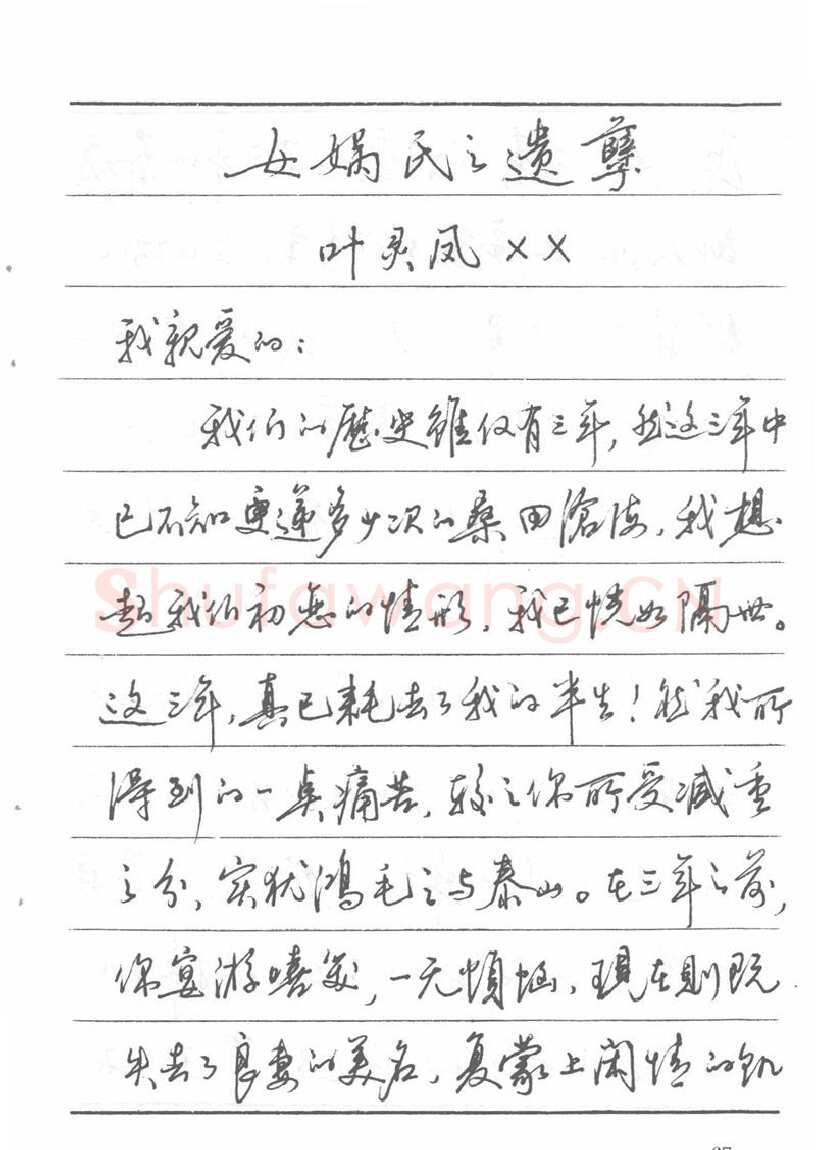 女娲氏之遗孽
叶灵凤××
我親爱的：
我们的歷史雖仅有三年，然这三年中
已不知更递多少次的桑田滄海，我想
起我们初恋的情形，我已恍如隔世。
这三年，真已耗去了我的半生！然我所
得到的一点痛苦，较之你所受
之分，实犹鴻毛之与泰山。在三年之前，
你宴游嘻笑，一无煩惱，現在則既
失去了良妻的美名，复蒙上閑情的
Shufawang.CN